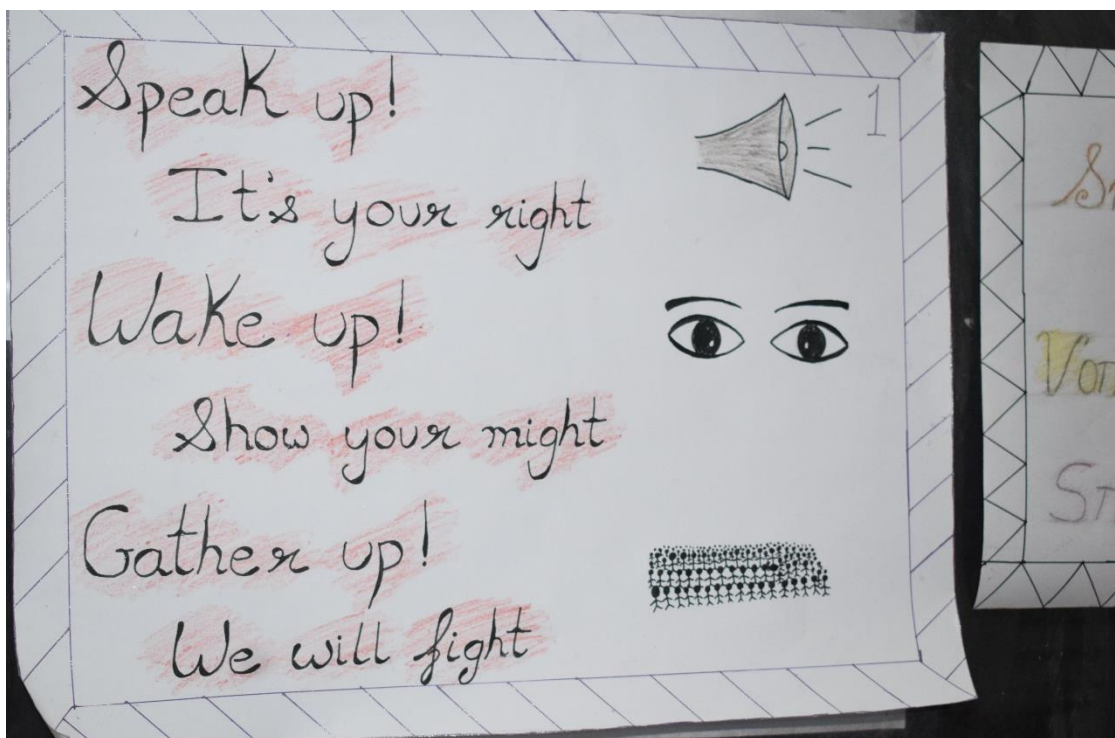 Speak up!
1
It's your right
Wake up!
Show your might
Gather up!
We will fight